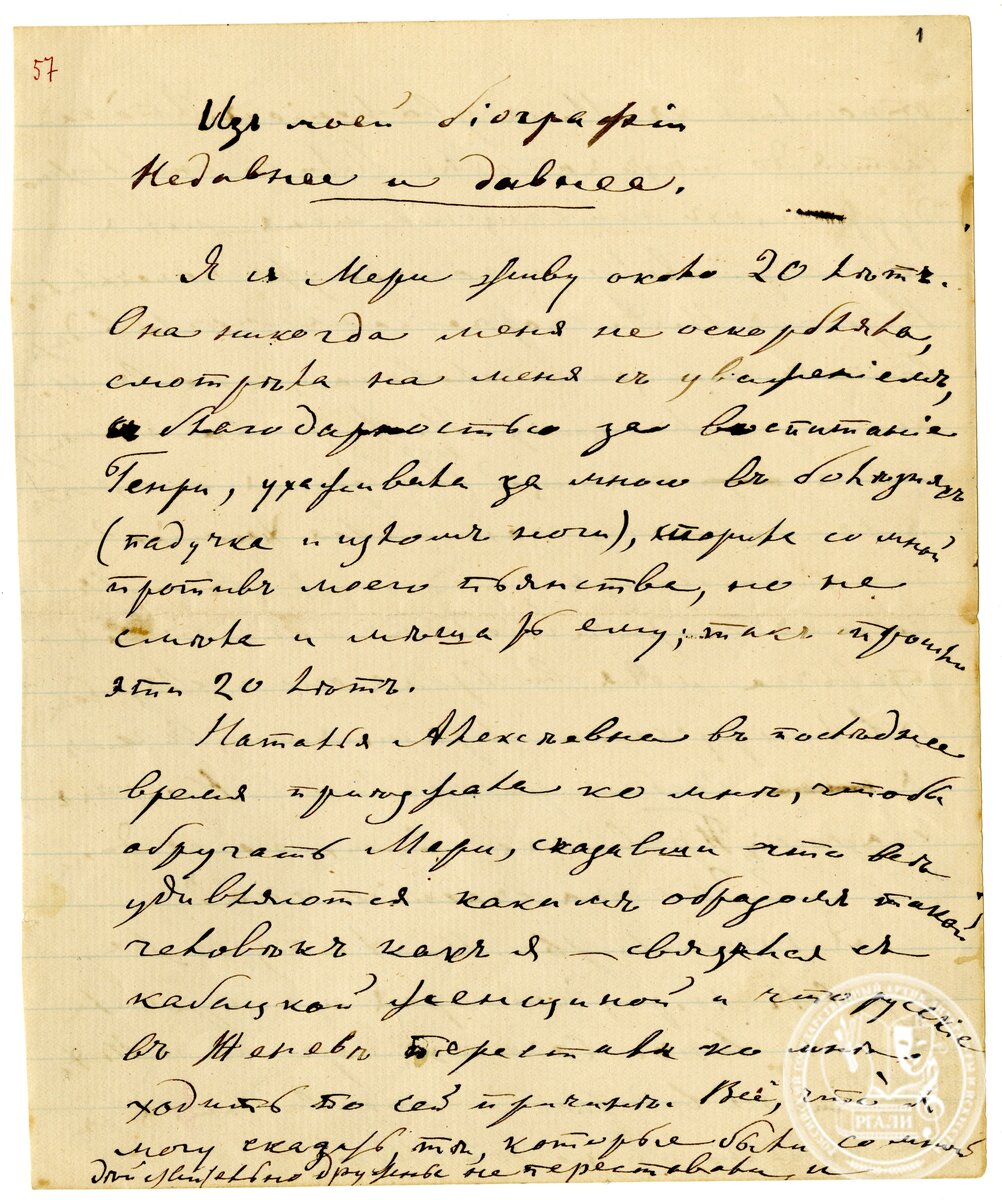 57
1
Изъ моей біографіи
Недавнее и давнее.
Я съ Мери живу около 20 лѣтъ.
Она никогда меня не оскорбляла,
смотрѣла на меня съ уваженіемъ,
и благодарностью за воспитаніе
Генри, ухаживала за мною въ болѣзняхъ
(падучка и изломъ ноги), спорила со мной
противъ моего пьянства, но не
смѣла и мѣшать ему; такъ прошли
эти 20 лѣтъ.
Наталья Алексѣевна въ послѣднее
время приѣзжала ко мнѣ, чтобы
обручать Мери, сказавши что всѣ
удивляются какимъ образомъ такой
человѣкъ какъ я — связался съ
кабацкой женщиной и что русскіе
въ Женевѣ перестали ко мнѣ
ходить по сей причинѣ. Всё, что я
могу сказать, тѣ, которые были со мной
дѣйствительно дружны не переставали, и
РГАЛИ